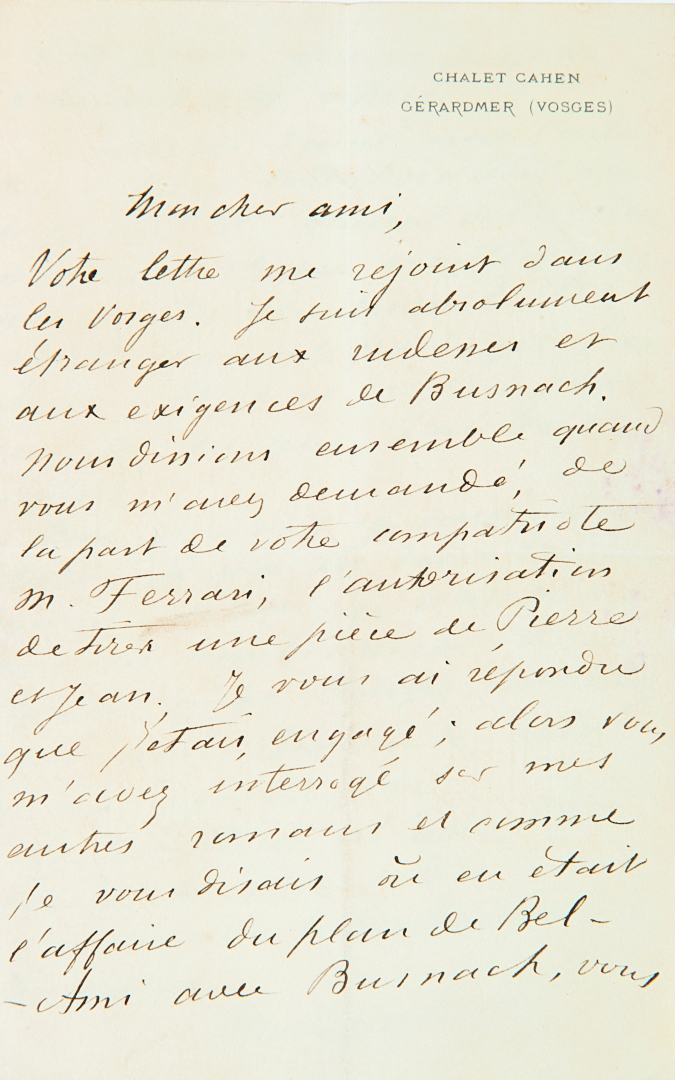 CHALET CAHEN
GÉRARDMER (VOSGES)
Mon cher ami,
Votre lettre me rejoint dans
les Vosges. Je suis absolument
étranger aux rudesses et
aux exigences de Busnach.
Nous dinions ensemble quand
vous m'avez demandé, de
la part de votre compatriote
M. Ferrari, l'autorisation
de tirer une pièce de Pierre
et Jean. Je vous ai répondu
que j'étais engagé; alors vous
m'avez interrogé sur mes
autres romans et comme
je vous disais où en était
l'affaire du plan de Bel-
-Ami avec Busnach, vous